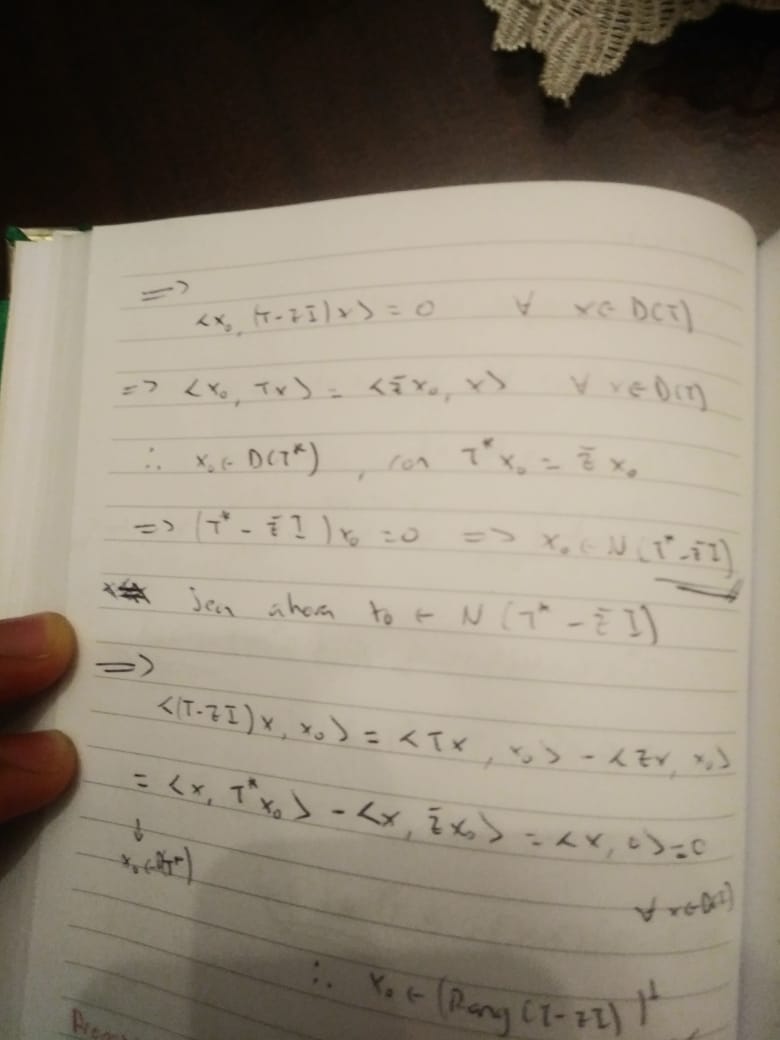 =>
<x₀, (T-zI)x> = 0 ∀ x∈D(T)
=> <x₀, Tx> = <z̄x₀, x> ∀ x∈D(T)
∴ x₀∈D(T*), con T*x₀ = z̄x₀
=> (T* - z̄I)x₀ = 0 => x₀∈N(T*-z̄I)
sea ahora x₀ ∈ N(T* - z̄I)
=>
<(T-zI)x, x₀> = <Tx, x₀> - <zx, x₀>
= <x, T*x₀> - <x, z̄x₀> = <x, 0> = 0
↓
x₀∈D(T*)
∀ x∈D(T)
∴ x₀ ∈ (Rang(T-zI))⊥